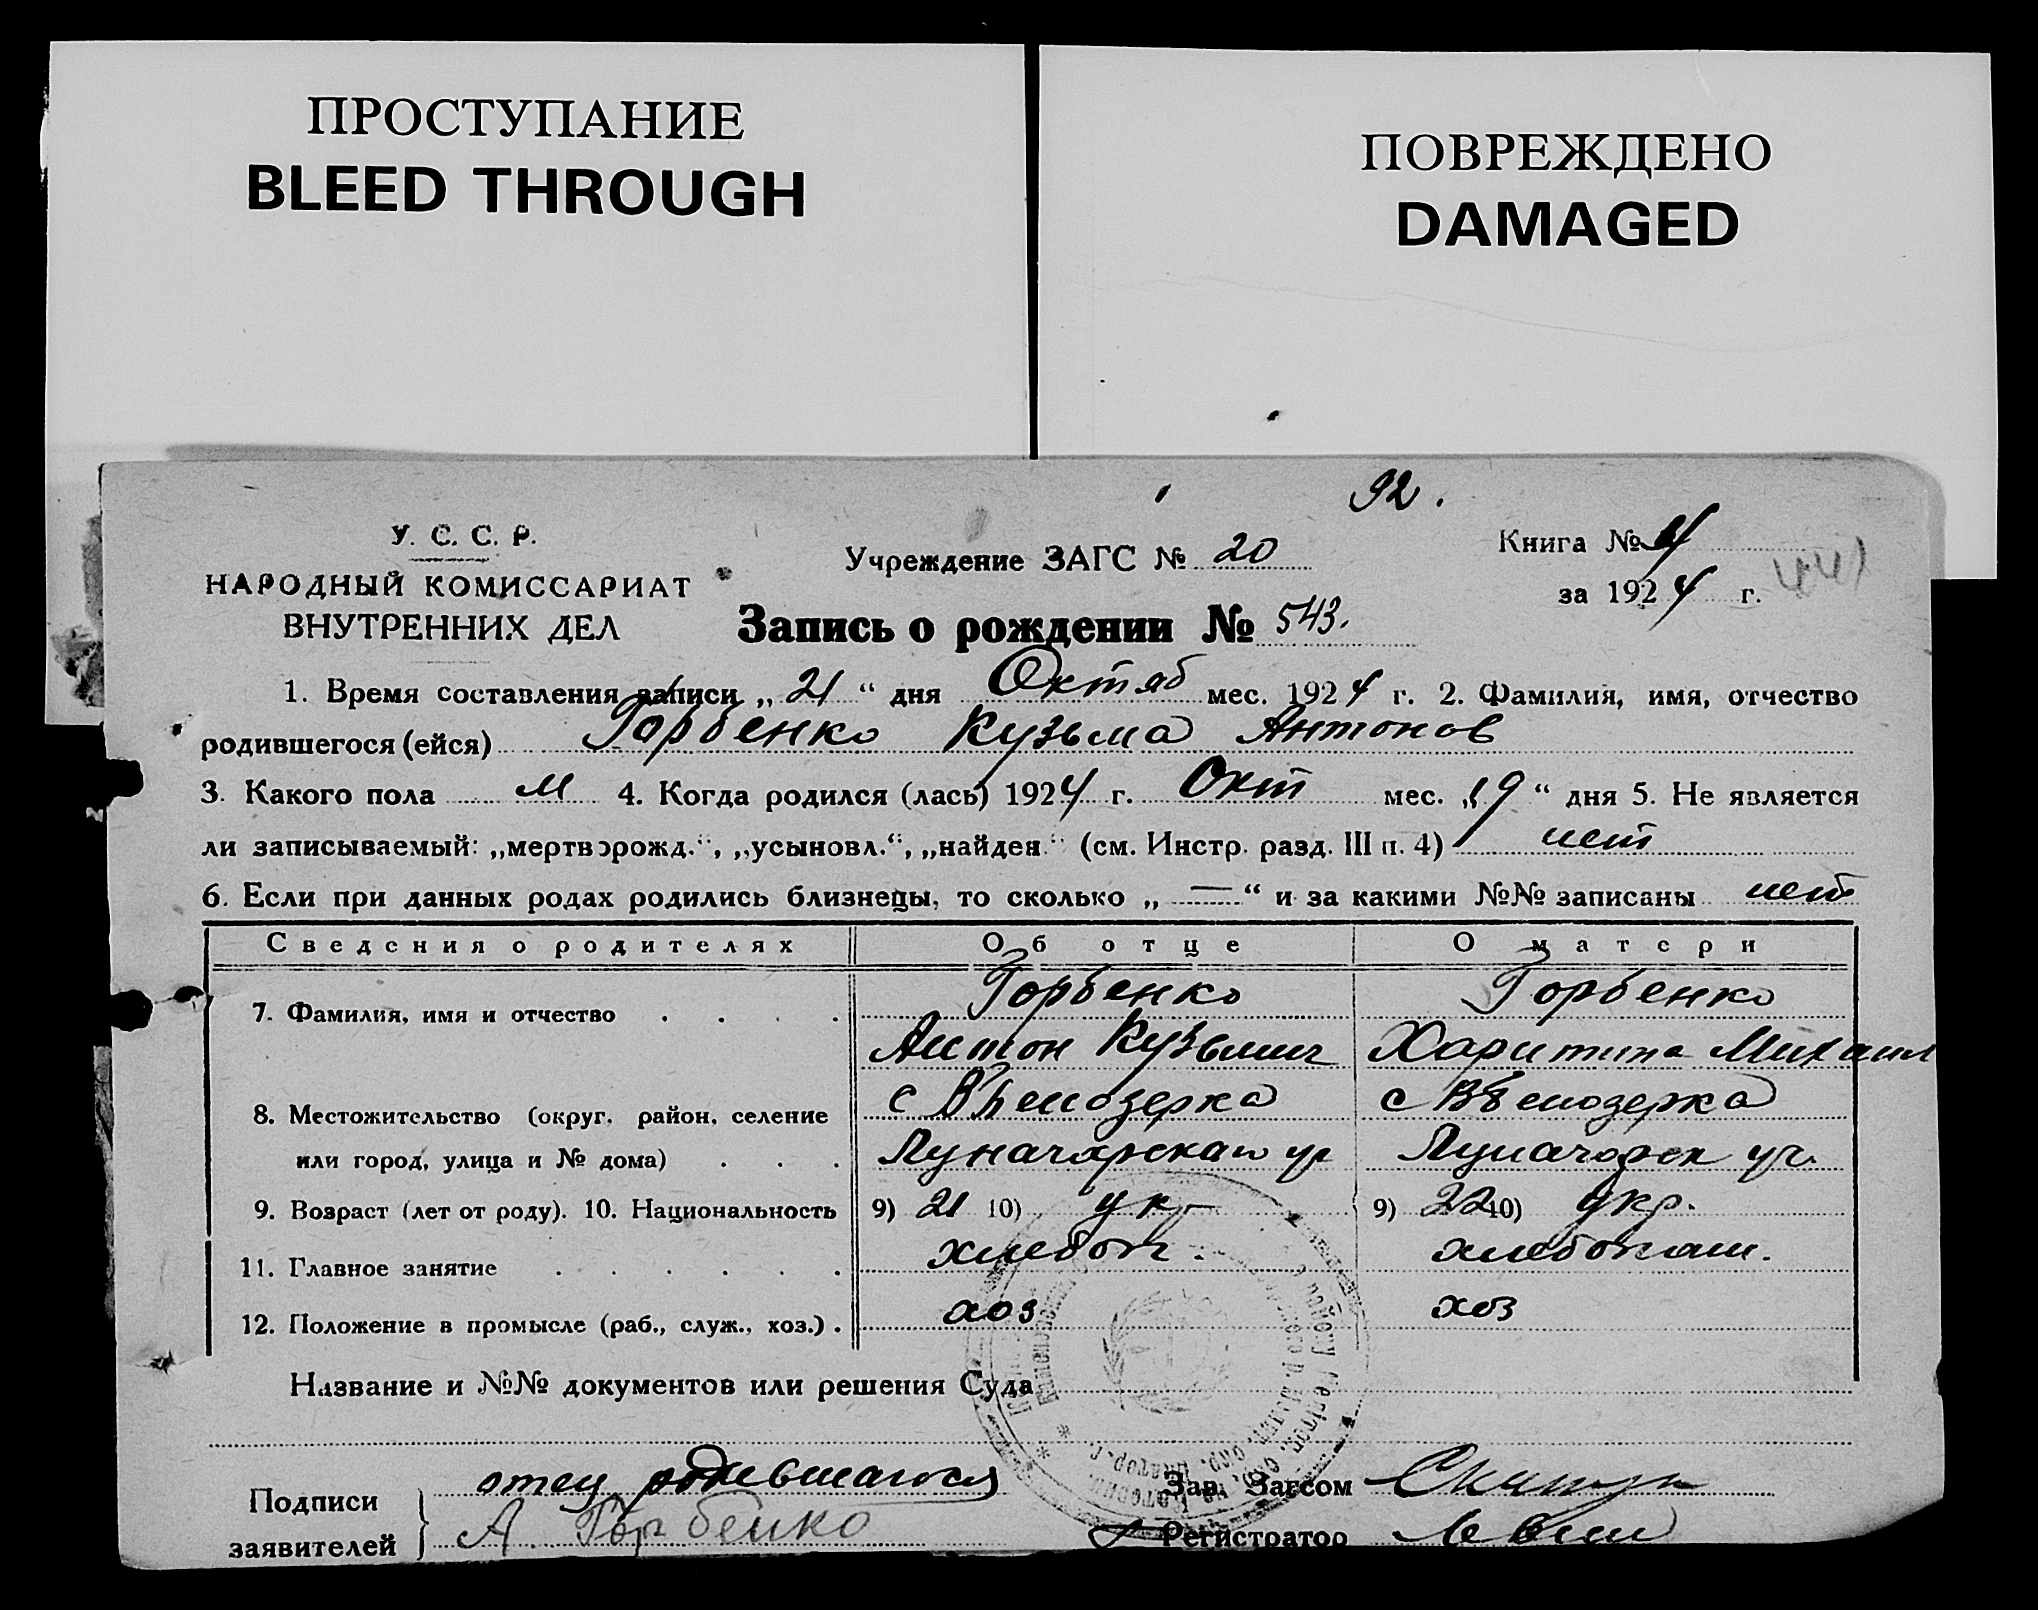 ПРОСТУПАНИЕ
BLEED THROUGH
ПОВРЕЖДЕНО
DAMAGED
92.
У. С. С. Р.
НАРОДНЫЙ КОМИССАРИАТ
ВНУТРЕННИХ ДЕЛ
Учреждение ЗАГС № 20
Книга № 4
за 1924 г.
Запись о рождении № 543.
1. Время составления записи „ 21 “ дня Октяб мес. 1924 г. 2. Фамилия, имя, отчество
родившегося (ейся) Горбенко Кузьма Антонов
3. Какого пола м 4. Когда родился (лась) 1924 г. Окт мес. „19“ дня 5. Не является
ли записываемый: „мертворожд.“, „усыновл.“, „найден.“ (см. Инстр. разд. III п. 4) нет
6. Если при данных родах родились близнецы, то сколько „ — “ и за какими №№ записаны нет
Сведения о родителях Об отце О матери
7. Фамилия, имя и отчество Горбенко Горбенко
Антон Кузьмич Харитина Михаил
8. Местожительство (округ, район, селение с Белозерка с Белозерка
или город, улица и № дома) Луначарская Луначарск
9. Возраст (лет от роду). 10. Национальность 9) 21 10) укр 9) 22 10) Укр.
11. Главное занятие хлебоп. хлебопаш.
12. Положение в промысле (раб., служ., хоз.) . хоз хоз
Название и №№ документов или решения Суда
Подписи заявителей } отец родившагося
А. Горбенко
Зав. Загсом
Регистратор